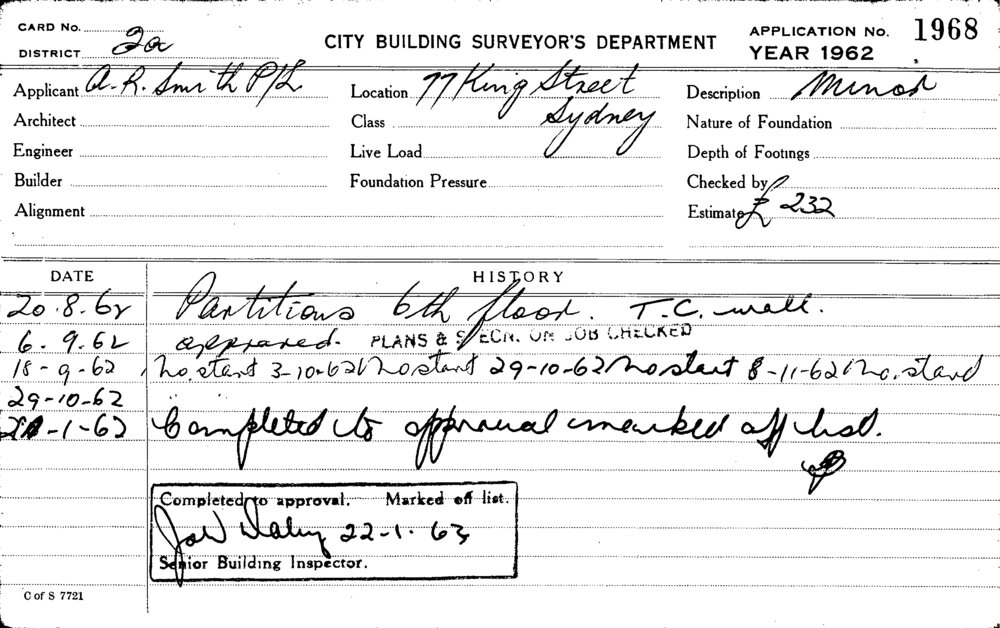 CARD No.
DISTRICT 2a
CITY BUILDING SURVEYOR'S DEPARTMENT
APPLICATION No. 1968
YEAR 1962
Applicant A. R. Smith P/L
Location 77 King Street
Sydney
Description Minor
Architect
Class
Nature of Foundation
Engineer
Live Load
Depth of Footings
Builder
Foundation Pressure
Checked by
Alignment
Estimate £ 232
DATE HISTORY
20.8.62 Partitions 6th floor. T.C. wall.
6.9.62 approved. PLANS & SPECN. ON JOB CHECKED
18-9-62 No. start 3-10-62 No start 29-10-62 No start 8-11-62 No. start
29-10-62 "
-1-62 Completed to approval marked off list.
Completed to approval. Marked off list.
22-1-63
Senior Building Inspector.
C of S 7721